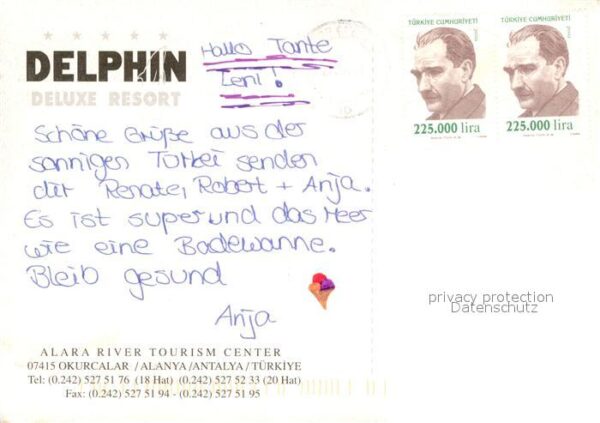 DELPHIN
DELUXE RESORT
Hallo Tante
Leni!
Schöne Grüße aus der
sonnigen Türkei senden
dir Renate, Robert + Anja.
Es ist super und das Meer
wie eine Badewanne.
Bleib gesund
Anja
ALARA RIVER TOURISM CENTER
07415 OKURCALAR / ALANYA / ANTALYA / TÜRKİYE
Tel: (0.242) 527 51 76 (18 Hat) (0.242) 527 52 33 (20 Hat)
Fax: (0.242) 527 51 94 - (0.242) 527 51 95
TÜRKİYE CUMHURİYETİ
225.000 lira
TÜRKİYE CUMHURİYETİ
225.000 lira
privacy protection
Datenschutz